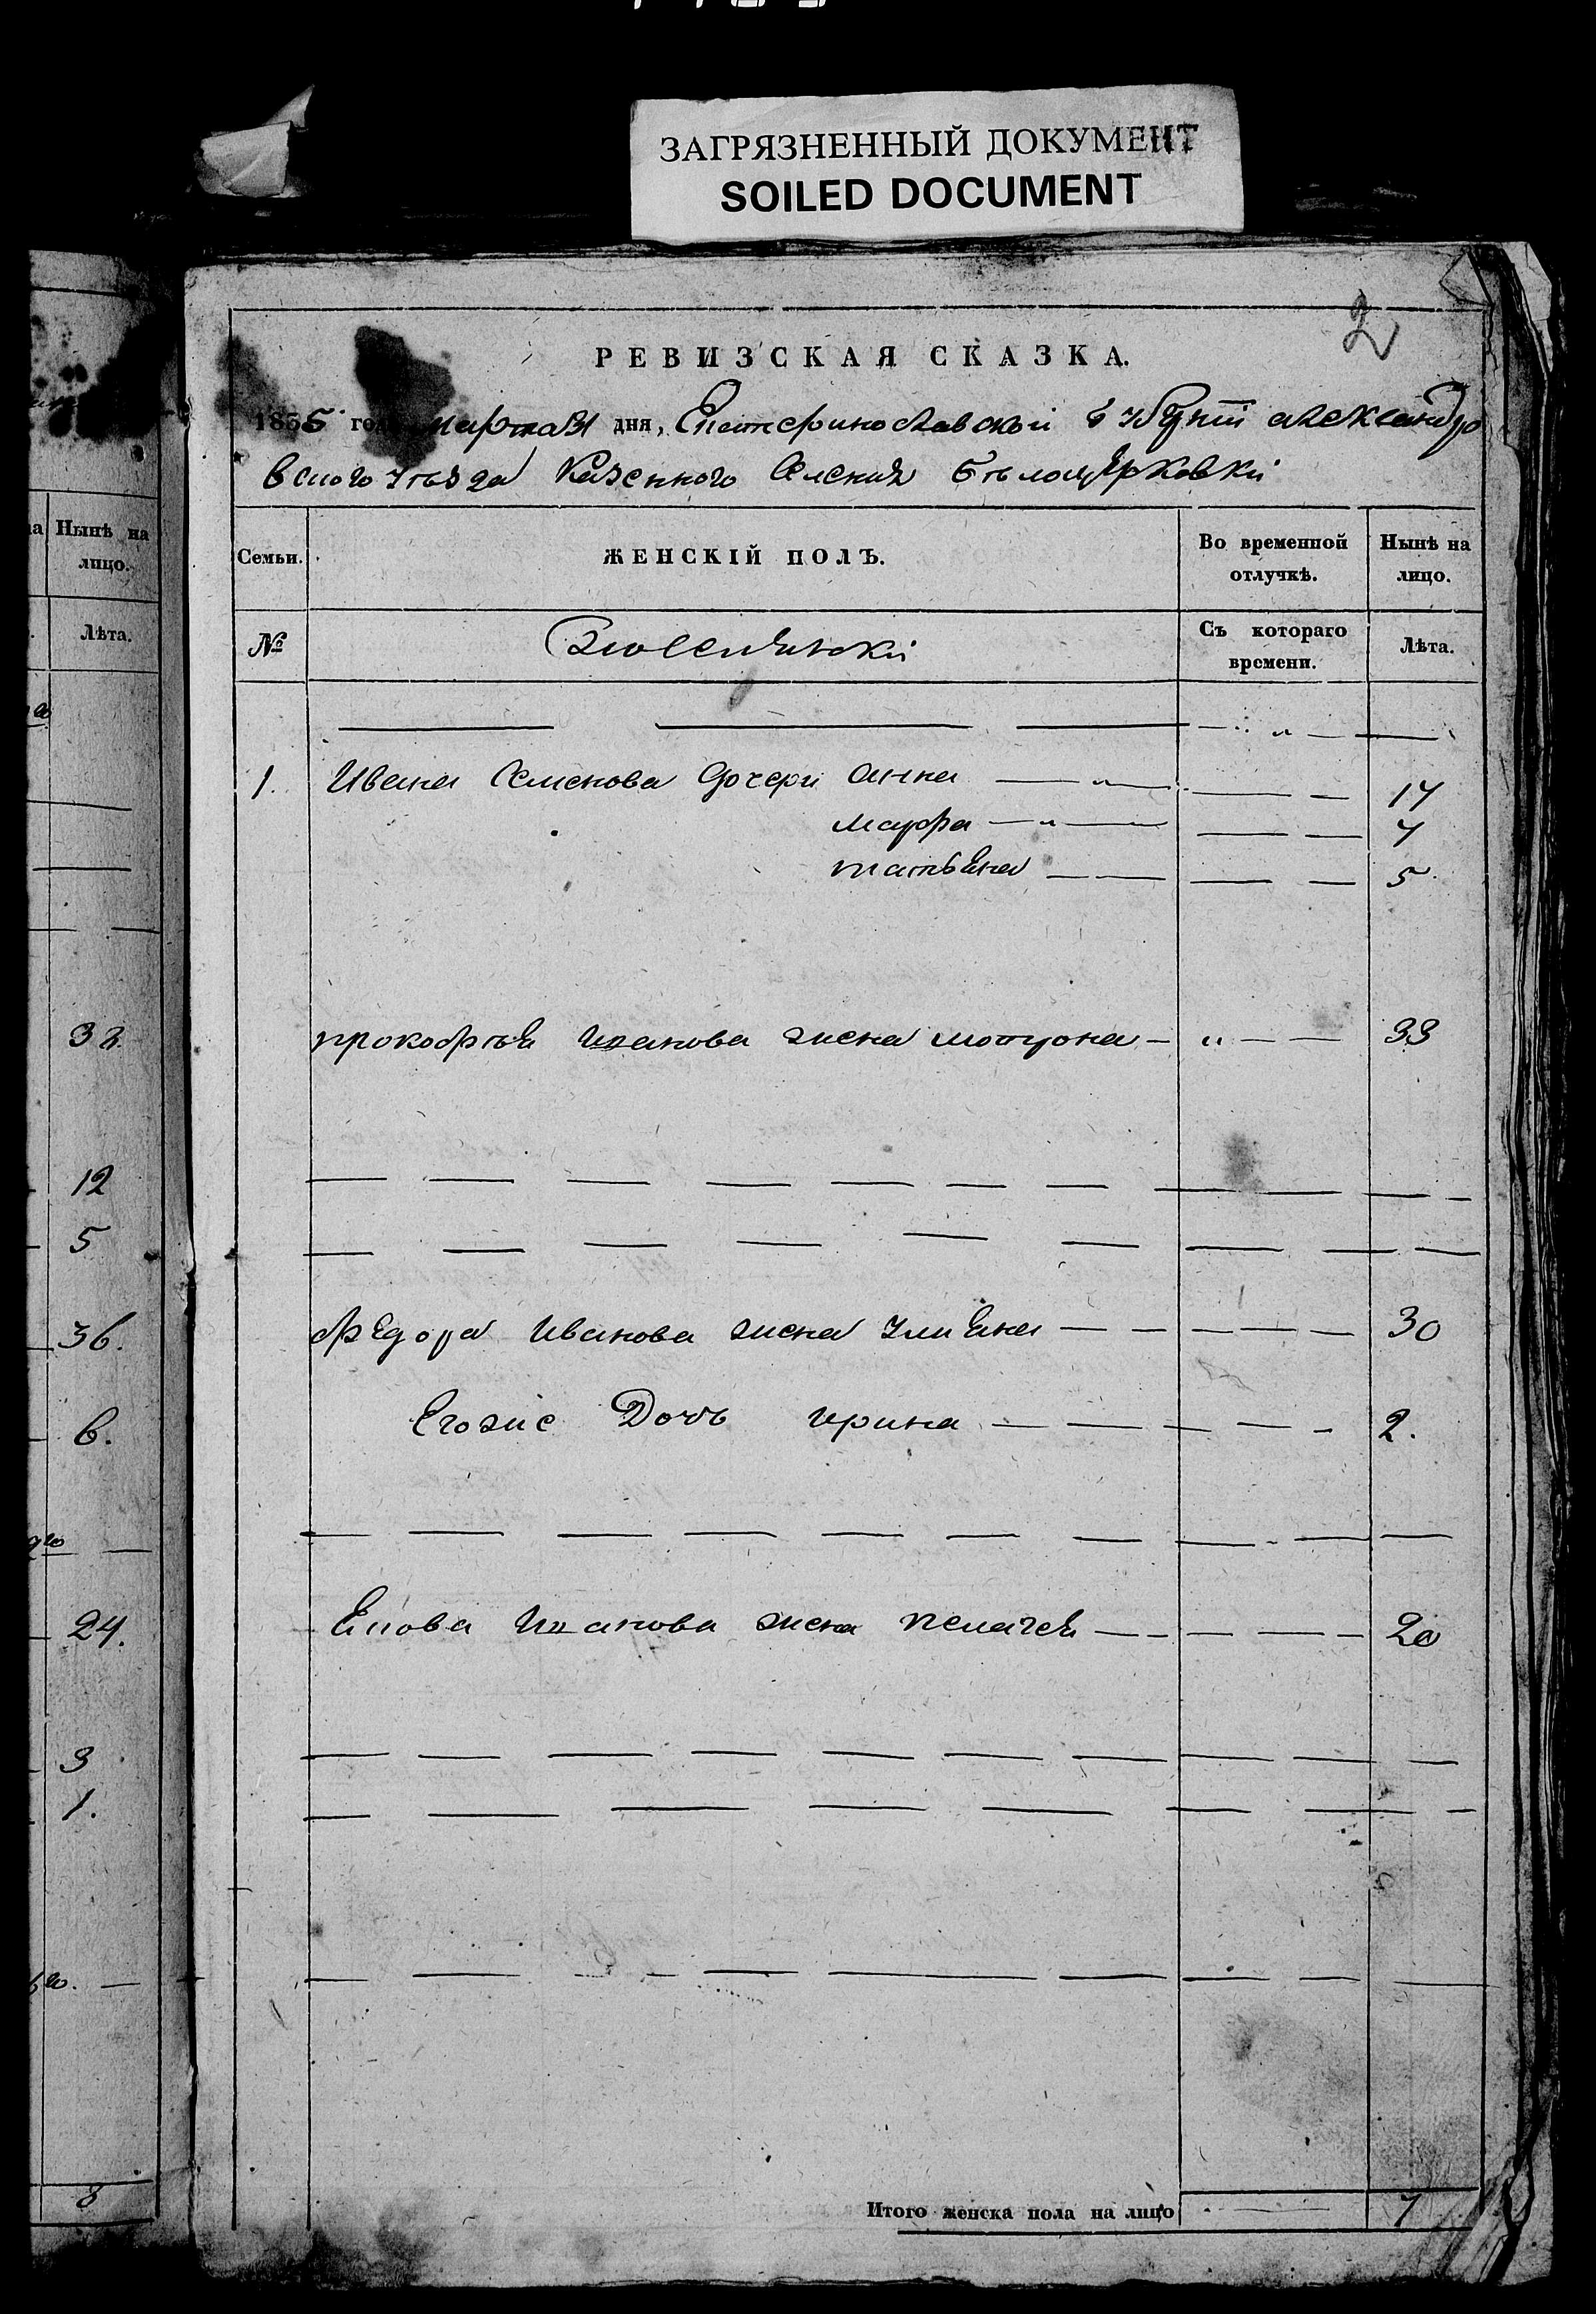 ЗАГРЯЗНЕННЫЙ ДОКУМЕНТ
SOILED DOCUMENT
2
РЕВИЗСКАЯ СКАЗКА.
1855 года марта 31 дня, Екатеринославской Губерніи александро
вского Уѣзда Казенного Селения Бѣлоцерковки
Нынѣ на
лицо.
Лѣта.
Семьи.
ЖЕНСКІЙ ПОЛЪ.
Во временной
отлучкѣ.
Нынѣ на
лицо.
№
Съ котораго
времени.
Лѣта.
1. Ивана Семенова дочери анна 14
марфа 7
татьяна 5
33
прокофѣя Иванова жена мотрона 33
12
5
36.
федора Иванова жена улияна 30
6.
Егоже Дочь ирина 2.
24.
Якова Иванова жена пелагея 20
3
1.
8
Итого женска пола на лицо 7